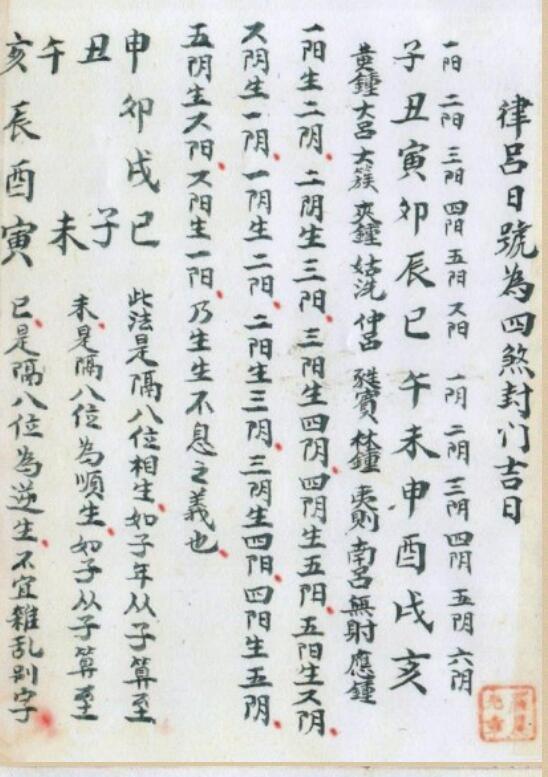 律呂日號為四煞封门吉日
一阳 二阳 三阳 四阳 五阳 六阳 一阴 二阴 三阴 四阴 五阴 六阴
子丑寅卯辰巳午未申酉戌亥
黃鍾 大呂 大簇 夾鍾 姑洗 仲呂 蕤賓 林鍾 夷則 南呂 無射 應鍾
一阳生二阴 二阴生三阳 三阳生四阴 四阴生五阳 五阳生六阴
六阴生一阴 一阴生二阳 二阳生三阴 三阴生四阳 四阳生五阴
五阴生六阳 六阳生一阳 乃生生不息之義也
申卯戌巳
丑子
午未
亥辰酉寅
此法是隔八位相生 如子年从子算至
未是隔八位為順生 如子从子算至
巳是隔八位為逆生 不宜雜乱别字